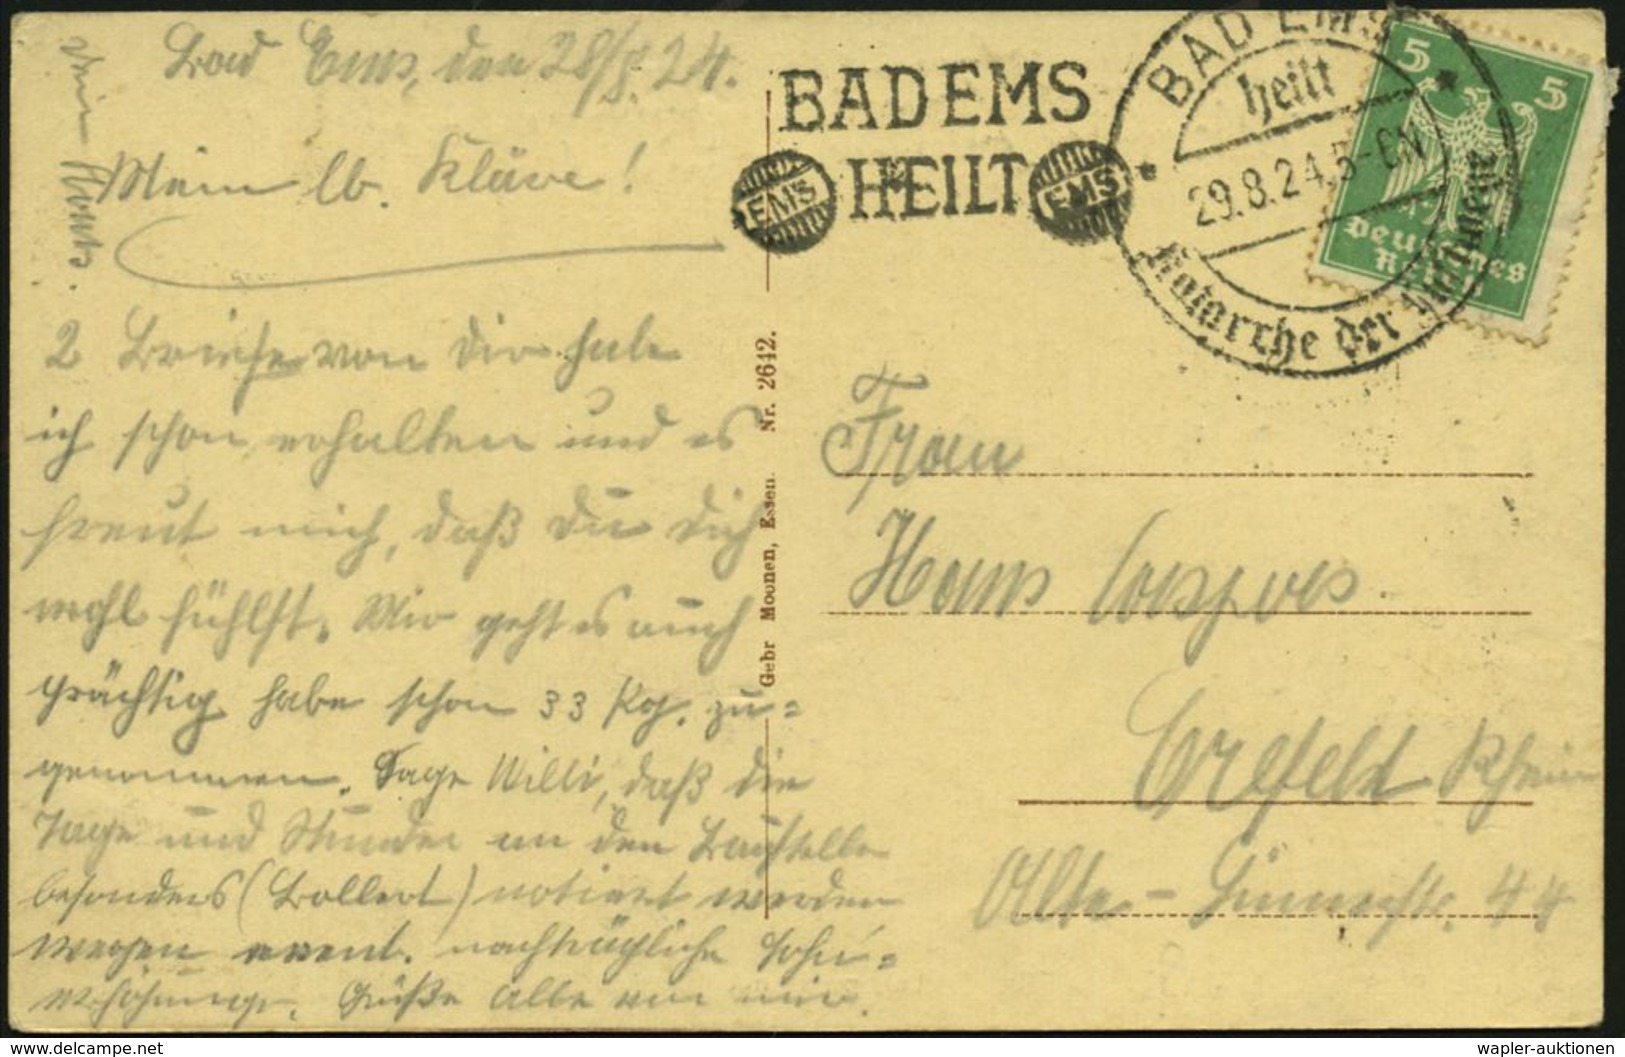 Bad Ems, den 28/8.24.
Mein lb. Kläre!
2 Briefe von Dir habe
ich schon erhalten und es
freut mich, daß Du Dich
wohl fühlst. Mir geht es auch
prächtig habe schon 33 Kg. zu=
genommen. Sage Willi, daß die
Tage und Stunden an den Baustelle
besonders (Bollert) notiert werden
wegen event. nachträgliche Lohn=
erhöhung. Grüße Alle von mir.
Dein Hans.
Gebr Moonen, Essen. Nr. 2642.
BAD EMS
HEILT
EMS
EMS
BAD EMS
heilt
29.8.24.5-6N
Katarrhe der
5
5
Deutsches
Reich
Frau
Hans Caspers
Crefeld Rhein
Alte-Linnerstr. 44
delcampe.net
wapler-auktionen